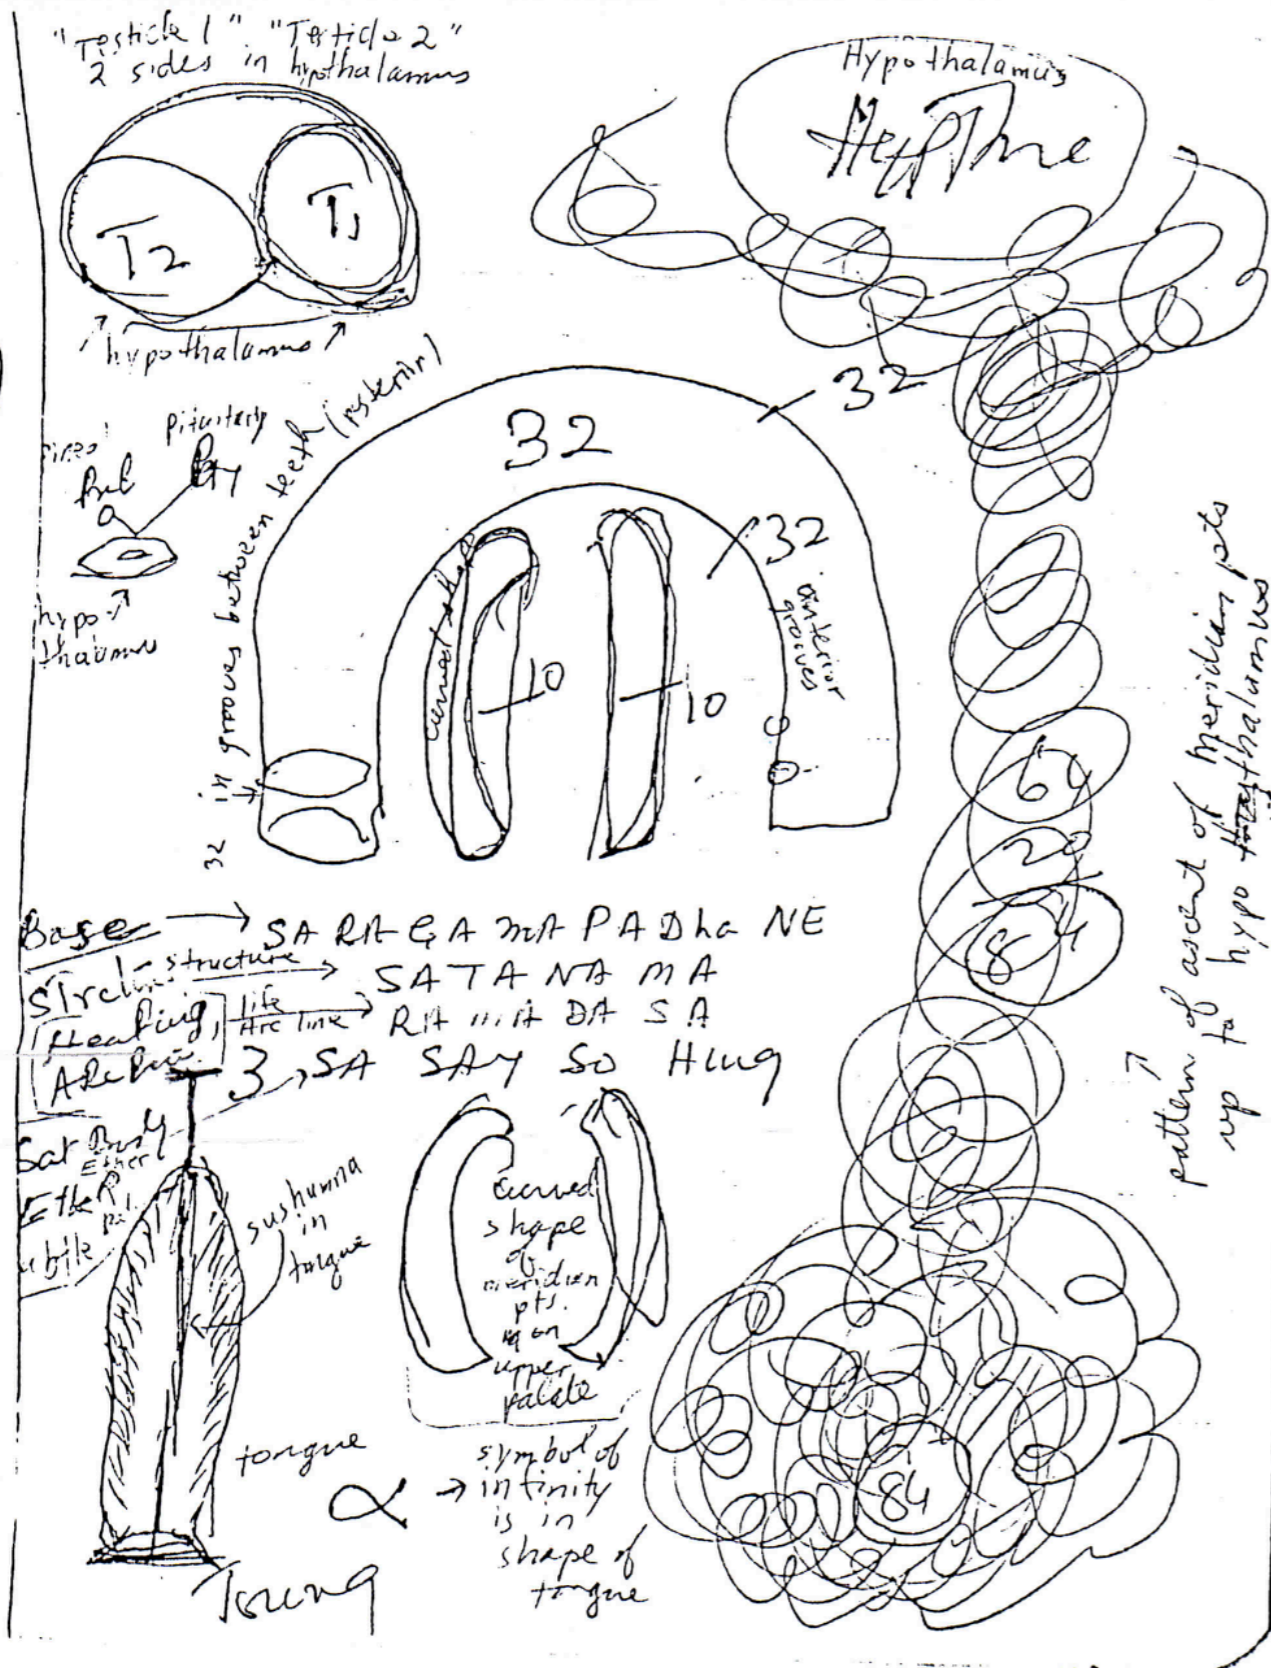 "Testicle 1" "Testicle 2"
2 sides in hypothalamus
T2
T1
hypothalamus
Hypothalamus
pineal
Pituitary
hypo
thalamus
32 in grooves between teeth (posterior)
32
32
32
anterior
grooves
curved shape
10
10
64
20
84
pattern of ascent of meridian pts
up to hypothalamus
Base → SA RA GA MA PA Dha NE
structure → SA TA NA MA
Healing, life
Arc line → RA MA DA SA
3 → SA SAY SO HUNG
Sat Body
Ether
sushumna
in
tongue
curved
shape
of
meridian
pts.
on
upper
palate
tongue
∝ → symbol of
infinity
is in
shape of
tongue
Toung
84